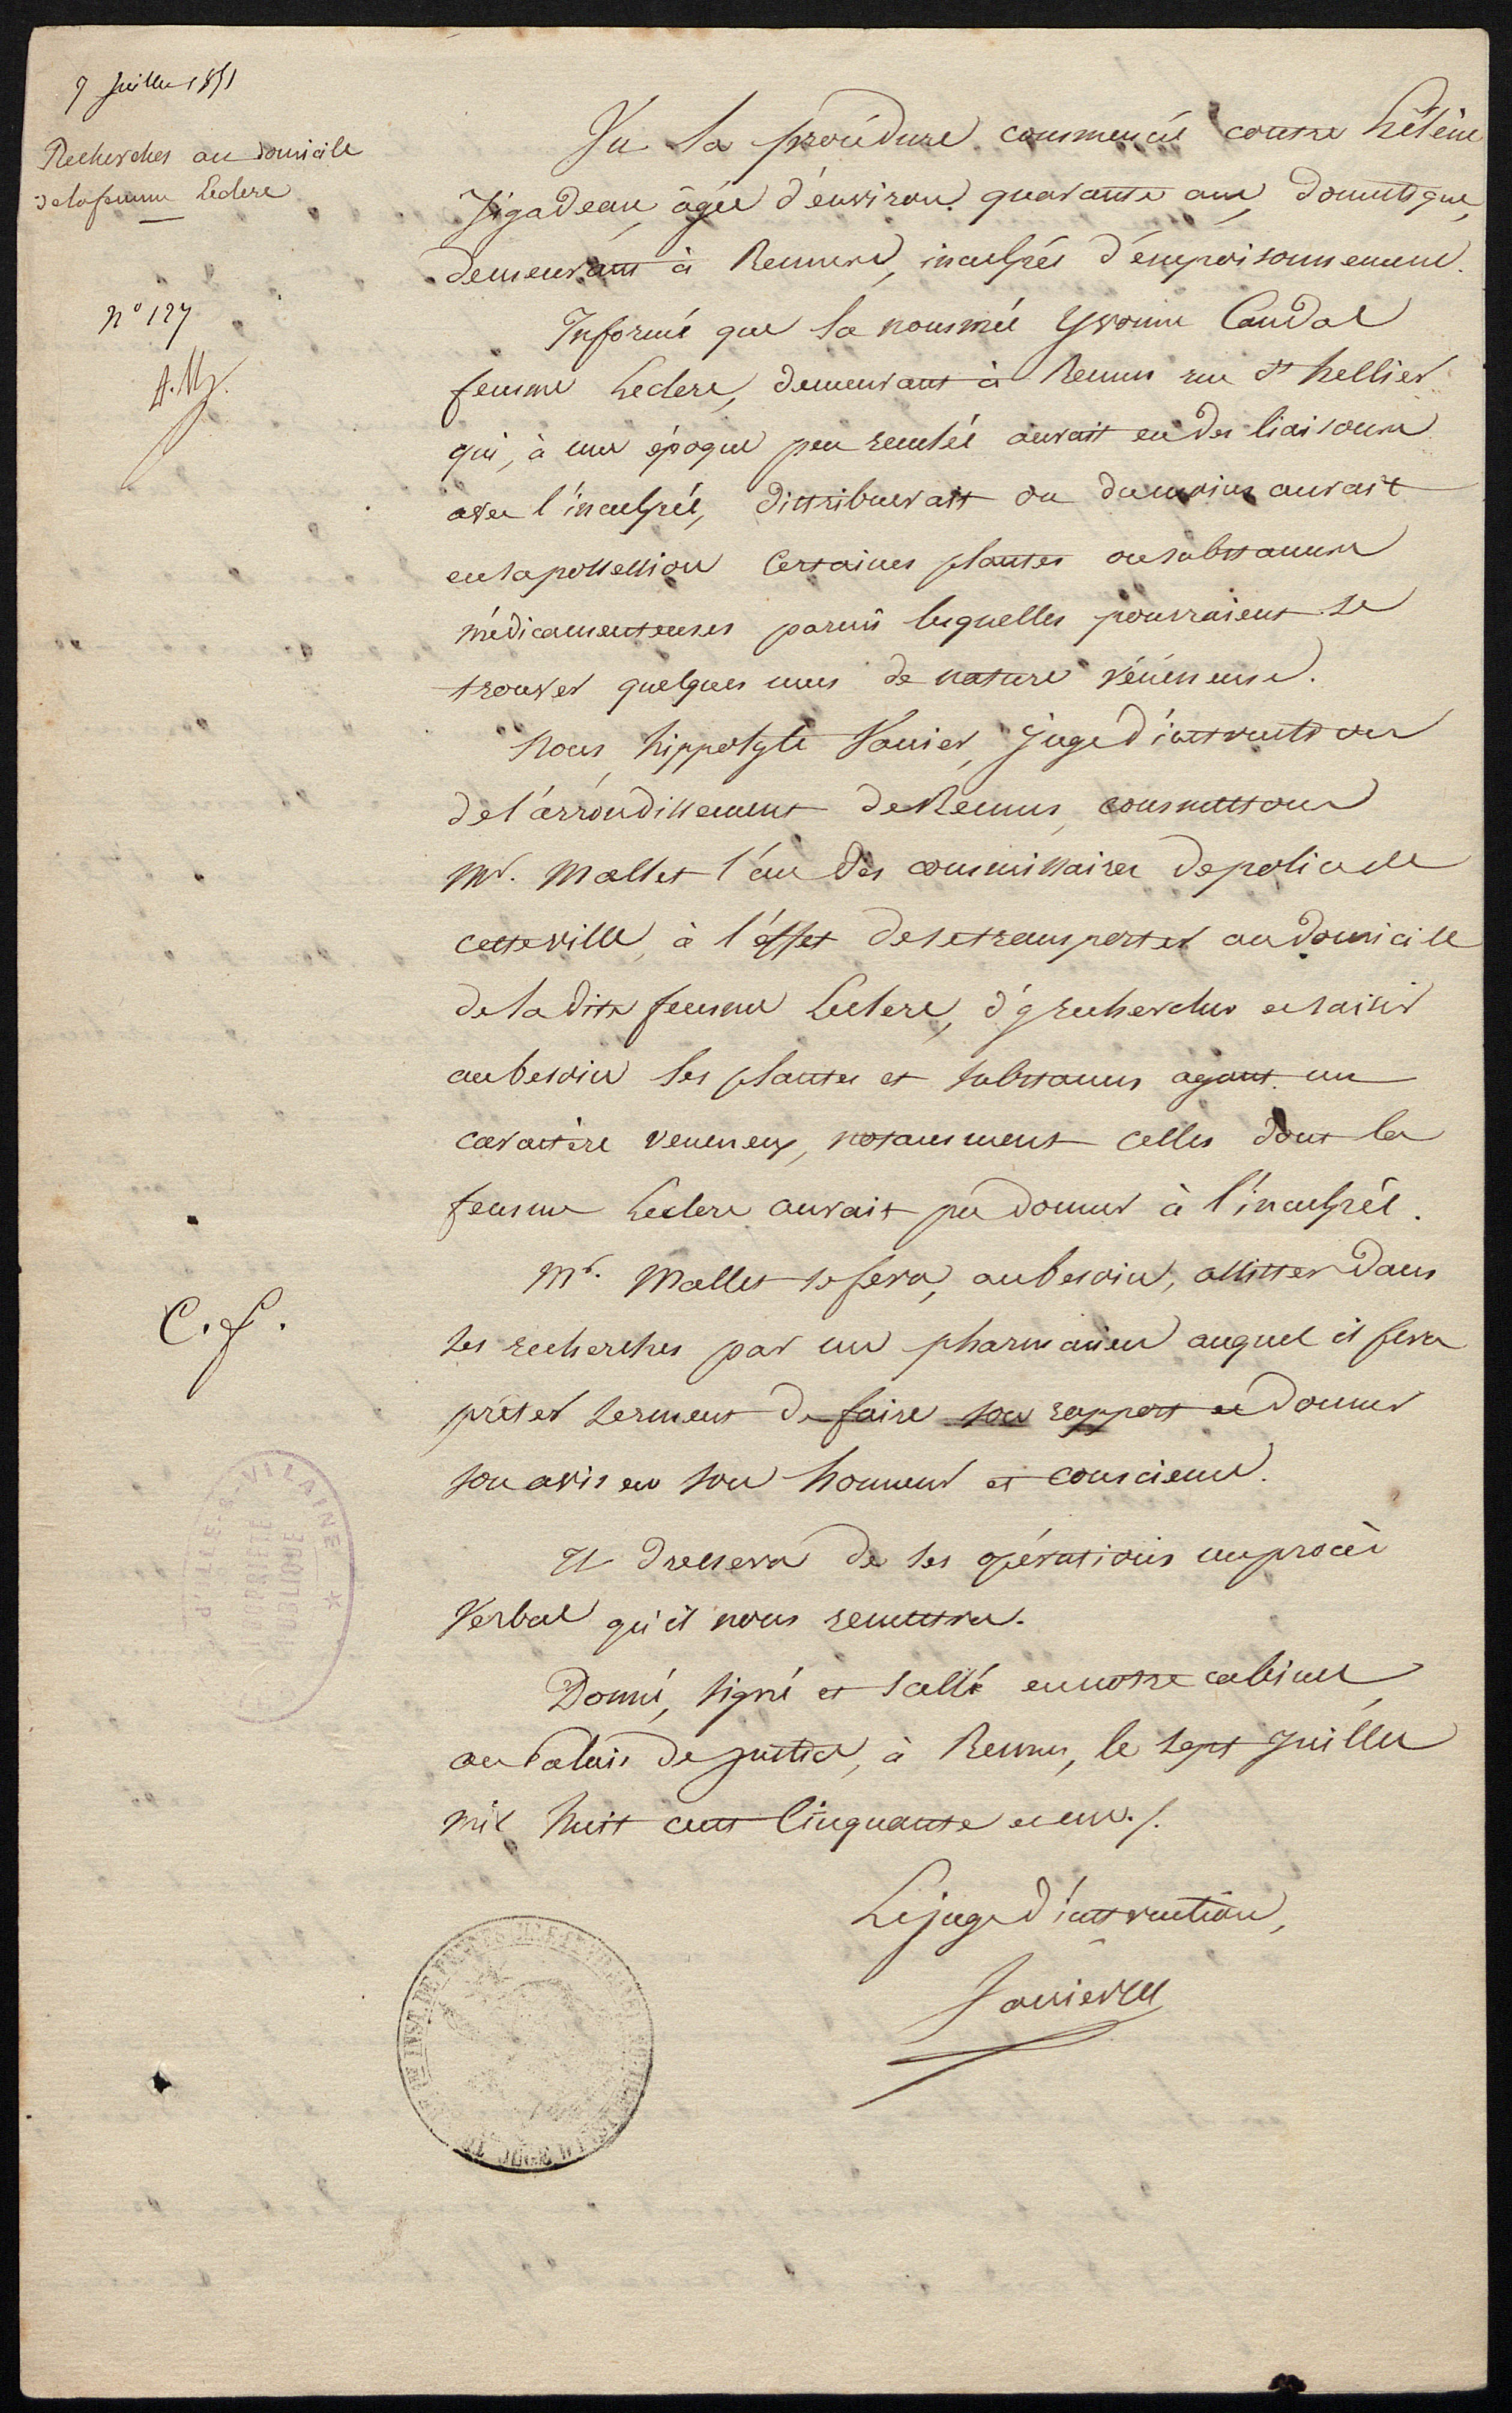 7 Juillet 1851
Recherches au domicile
de la femme Leclere
n° 127
C. f.
D'ILLE-&-VILAINE
PROPRIÉTÉ
PUBLIQUE
Vu la procédure commencée contre hélène
Jigadeau, âgée d'environ quarante ans, domestique,
demeurant à Rennes, inculpée d'empoisonnement.
Informé que la nommée Yvonne Caudal
femme Leclere, demeurant à Rennes rue St hellier
qui, à une époque peu reculée aurait eu des liaisons
avec l'inculpée, distribuerait ou du moins aurait
en sa possession certaines plantes ou substances
médicamenteuses parmi lesquelles pourraient se
trouver quelques unes de nature vénéneuse.
Nous, hippolyte Vannier, juge d'instruction
de l'arrondissement de Rennes, commettons
Mr. Mallet l'un des commissaires de police de
cette ville, à l'effet de se transporter au domicile
de la dite femme Leclere, d'y rechercher et saisir
au besoin les plantes et substances ayant un
caractère veneneux, notamment celles dont la
femme Leclere aurait pu donner à l'inculpée.
Mr. Mallet se fera, au besoin, assister dans
ses recherches par un pharmacien auquel il fera
prêter serment de faire son rapport et donner
son avis en son honneur et conscience.
Il dressera de ses opérations un procès
Verbal qu'il nous remettra.
Donné, signé et scellé en notre cabinet,
au Palais de justice, à Rennes, le sept Juillet
mil huit cent Cinquante et un./.
Le juge d'instruction,